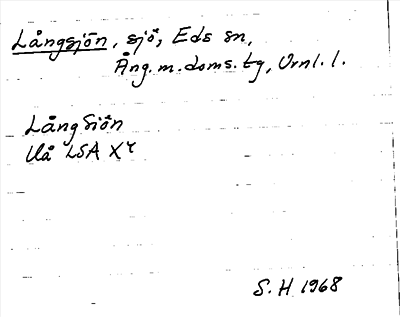 Långsjön, sjö, Eds sn,
Ång. m. doms. tg, Vrnl. l.
Lång Siön
Uå LSA X4
S. H 1968